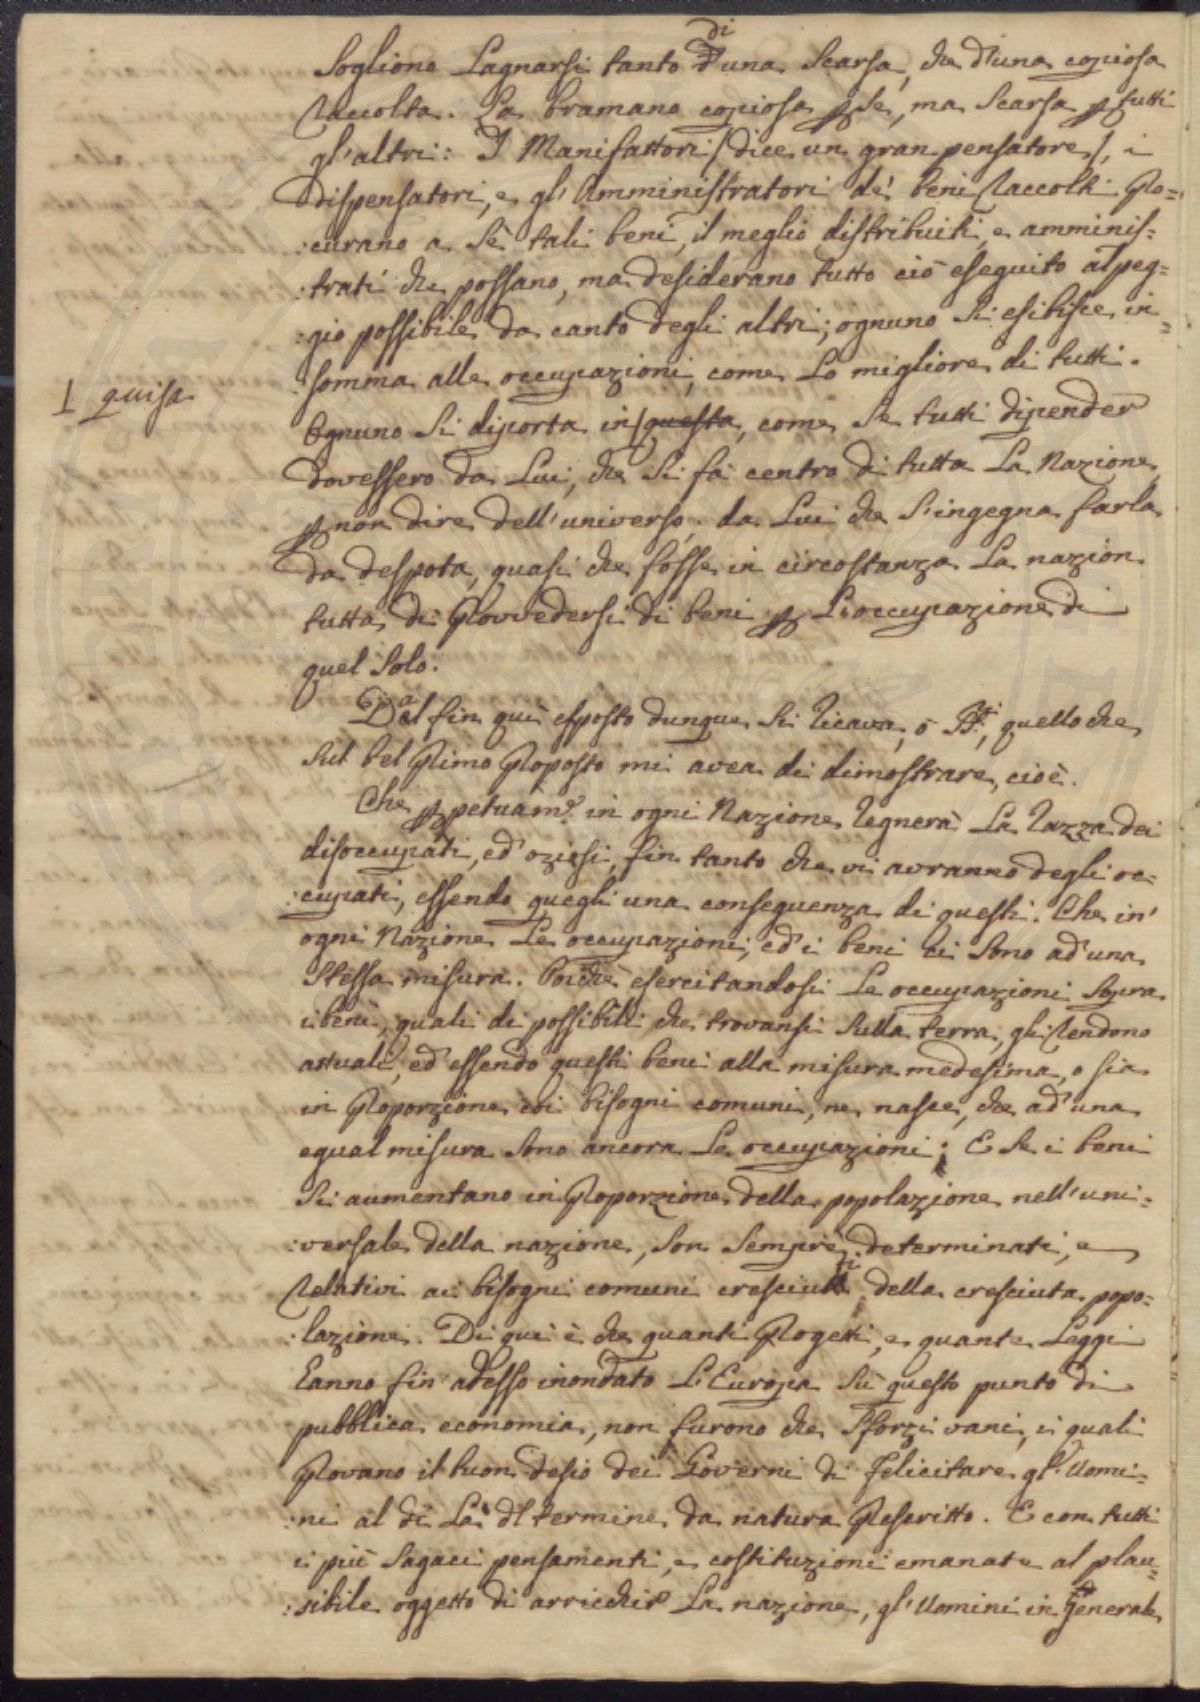 Sogliono Lagnarsi tanto di d'una Scarsa, che d'una copiosa
raccolta. La bramano copiosa p se, ma Scarsa p tutti
gl'altri: I Manifattori /dice un gran pensatore/, i
dispensatori, e gl'Amministratori de' beni raccolti Pro=
:curano a Sè tali beni, il meglio distribuiti, e amminis=
:trati che possano, ma desiderano tutto ciò eseguito al peg=
:gio possibile da canto degli altri; ognuno Si esibisce in=
:somma alle occupazioni, come Lo migliore di tutti.
⊥ guisa
Ognuno Si diporta in/questa, come Se tutti dipender
dovessero da Lui, che Si fà centro di tutta La Nazione,
p non dire dell'universo, da Lui che S'ingegna farla
da despota, quasi che fosse in circostanza La nazion
tutta di Provvedersi di beni p L'occupazione di
quel Solo.
Dal fin quì esposto dunque Si ricava, ò Sti, quello che
Sul bel Primo Proposto mi avea di dimostrare, cioè.
Che ppetuam.e in ogni Nazione regnerà La razza dei
disoccupati, ed oziosi, fin tanto che vi avranno degli oc=
:cupati, essendo quegli una conseguenza di questi. Che in'
ogni Nazione Le occupazioni, ed i beni ci Sono ad'una
Stessa misura. Poichè esercitandosi Le occupazioni Sopra
i beni, quali di possibili che trovansi Sulla terra, gli rendono
attuali, ed essendo questi beni alla misura medesima, o sia
in Proporzione coi bisogni comuni, ne nasce, che ad'una
egual misura Sono ancora Le occupazioni; E Se i beni
Si aumentano in Proporzione della popolazione nell'uni=
:versale della nazione, Son Sempre determinati, e
relativi ai bisogni comuni cresciuti della cresciuta popo=
:lazione. Di quì è che quanti Progetti, e quante Leggi
hanno fin'adesso inondato L'Europa Sù questo punto di
pubblica economia, non furono che Sforzi vani, i quali
Provano il buon desio dei Governi di felicitare gl'Uomi=
:ni al di Là dl termine da natura Prescritto. E con tutti
i più Sagaci pensamenti, e costituzioni emanate al plau=
:sibile oggetto di arricchir La nazione, gl'Uomini in Generale